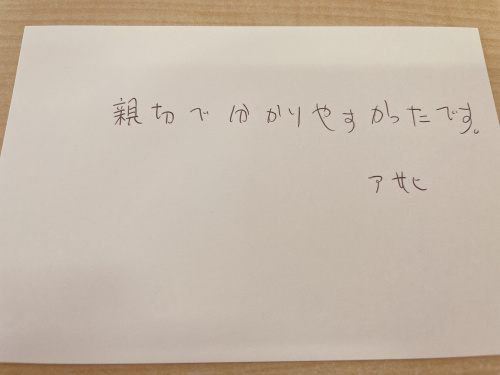 親切で分かりやすかったです。
アサヒ